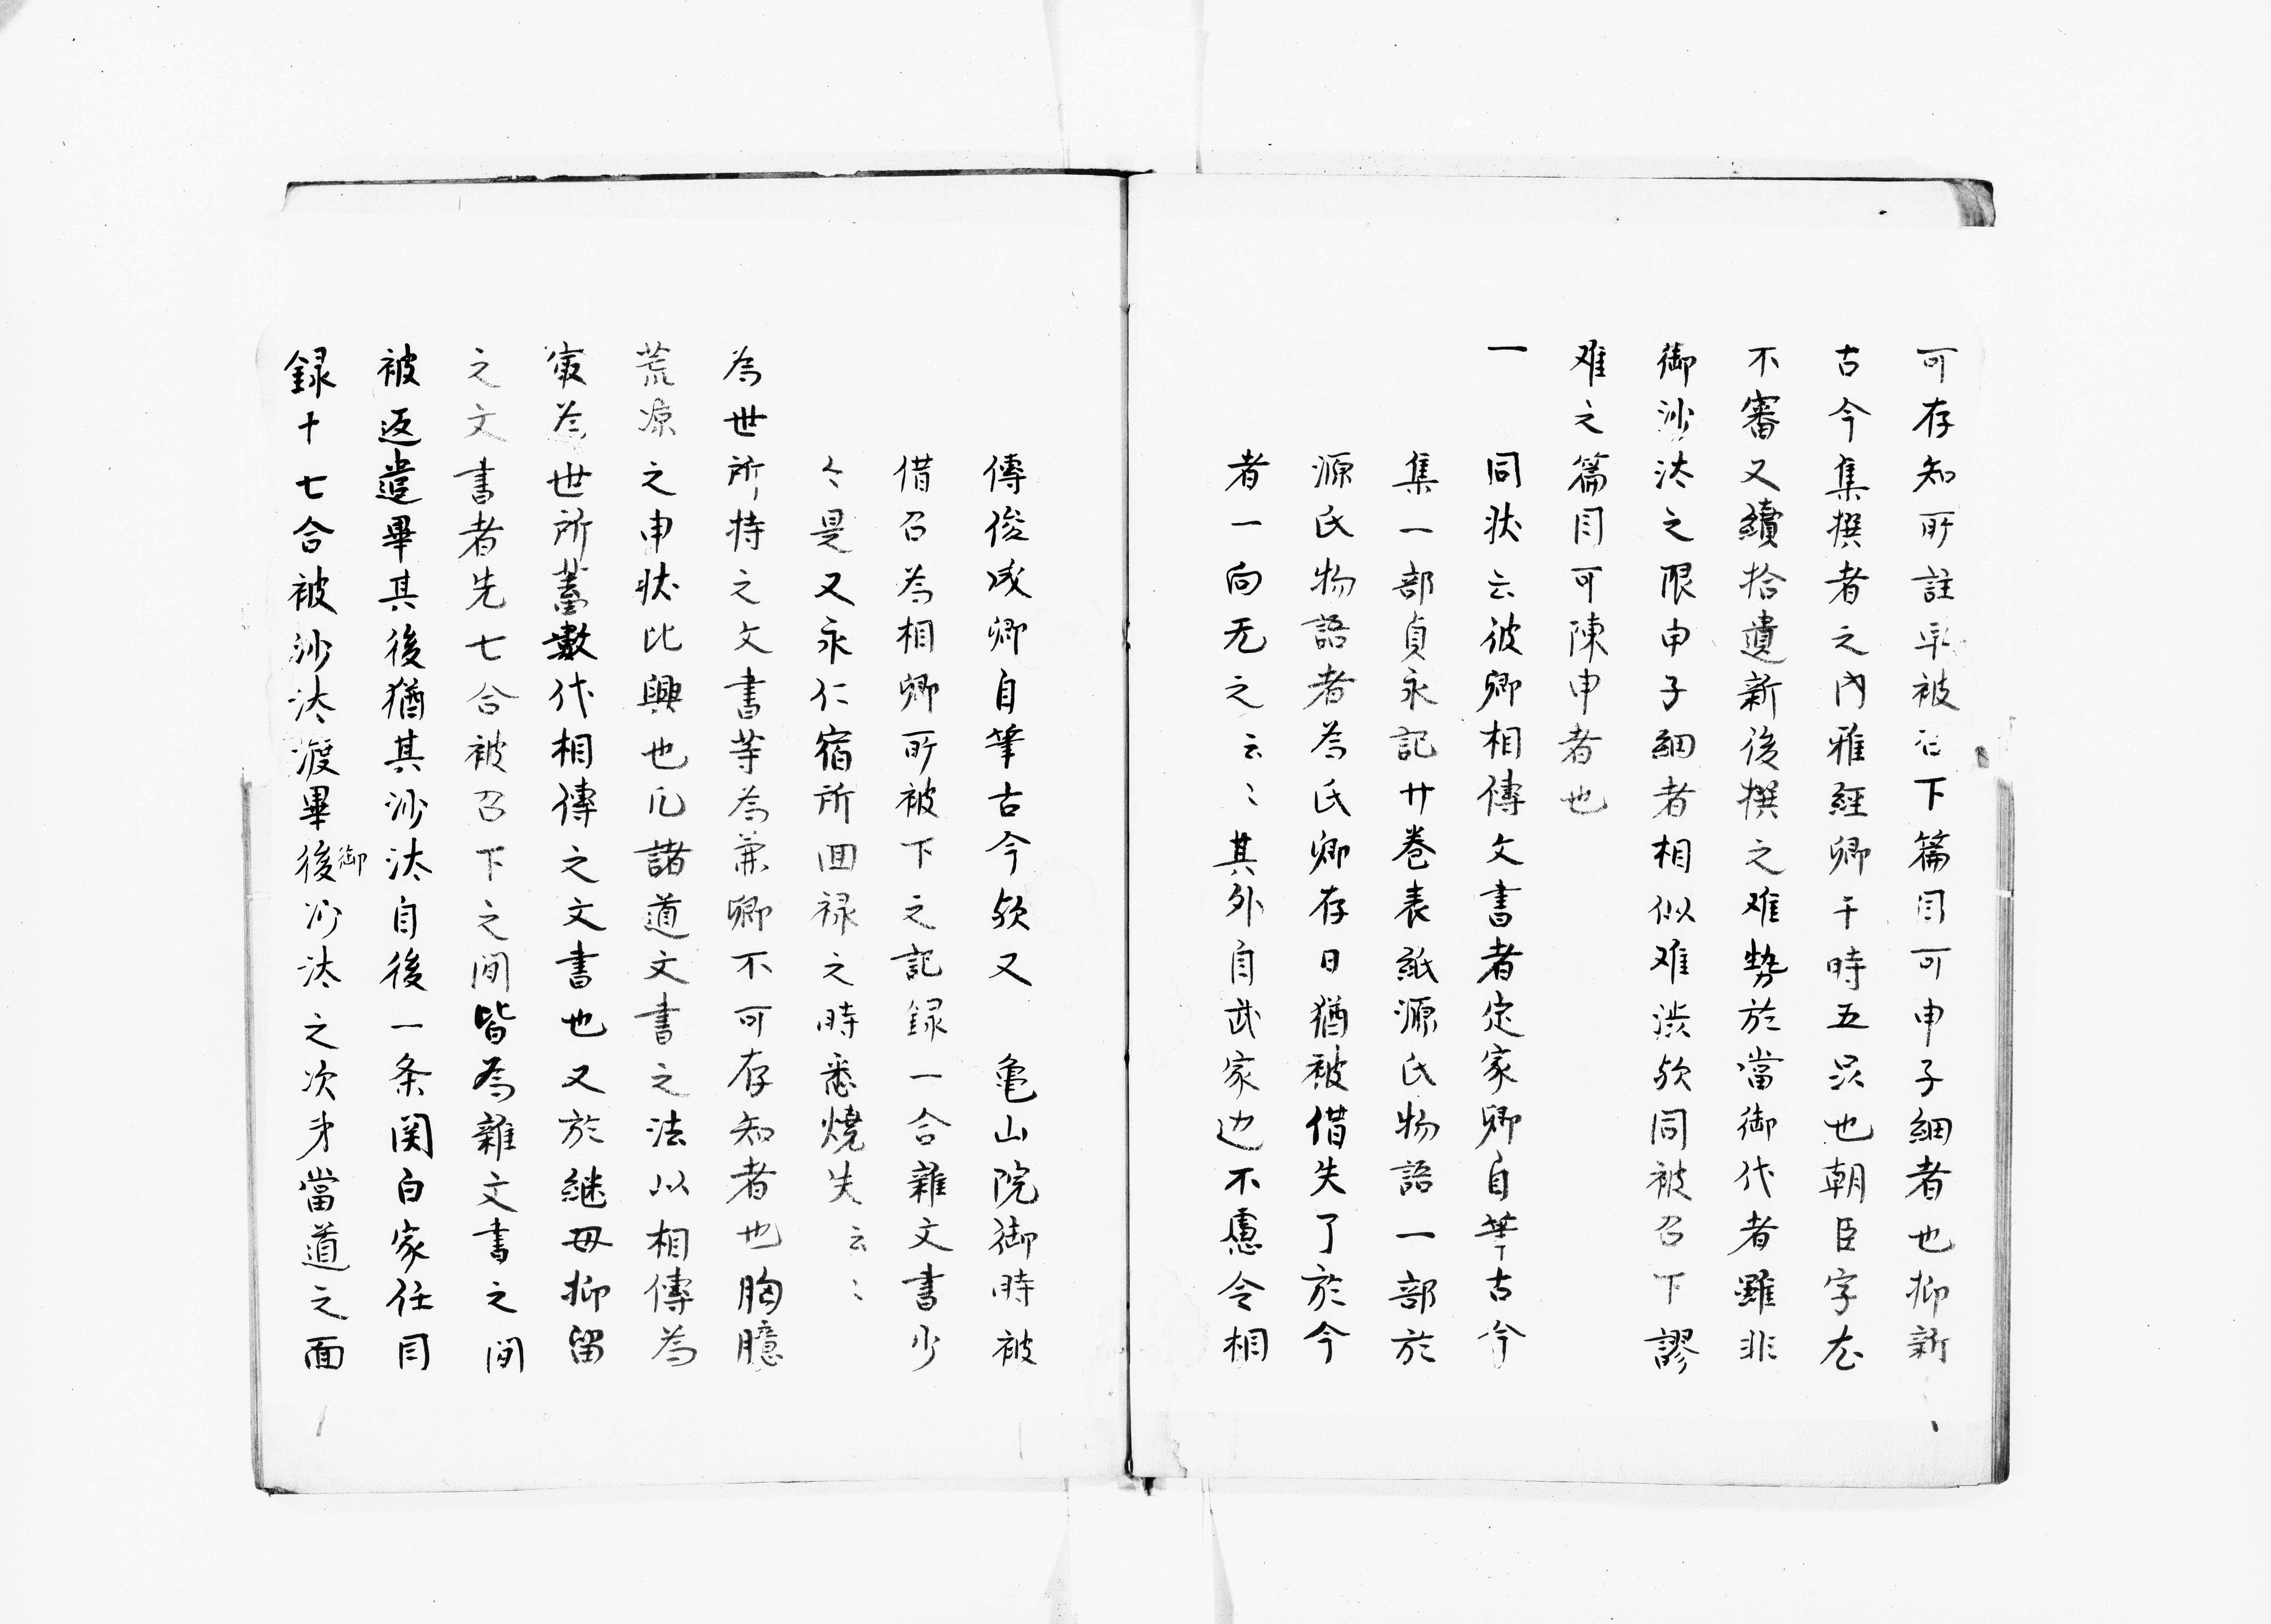 可存知所註平被召下篇目可申子細者也抑新
古今集撰者之内雅経卿于時五品也朝臣字尤
不審又續拾遺新後撰之難勢於當御代者雖非
御沙汰之限申子細者相似难渋欤同被召下謬
难之篇目可陳申者也
一 同状云彼卿相傳文書者定家卿自筆古今
集一部貞永記廿巻表紙源氏物語一部於
源氏物語者為氏卿存日猶被借失了於今
者一向无之云〻其外自武家辺不慮令相
傳俊成卿自筆古今欤又 亀山院御時被
借召為相卿所被下之記録一合雜文書少
々是又永仁宿所回禄之時悉燒失云〻
為世所持之文書等為兼卿不可存知者也胸臆
荒凉之申状比興也凡諸道文書之法以相傳為
宗為世所蓄數代相傳之文書也又於継母抑留
之文書者先七合被召下之間皆為雜文書之間
被返遣畢其後猶其沙汰自後一条関白家任目
録十七合被沙汰渡畢後御沙汰之次第當道之面